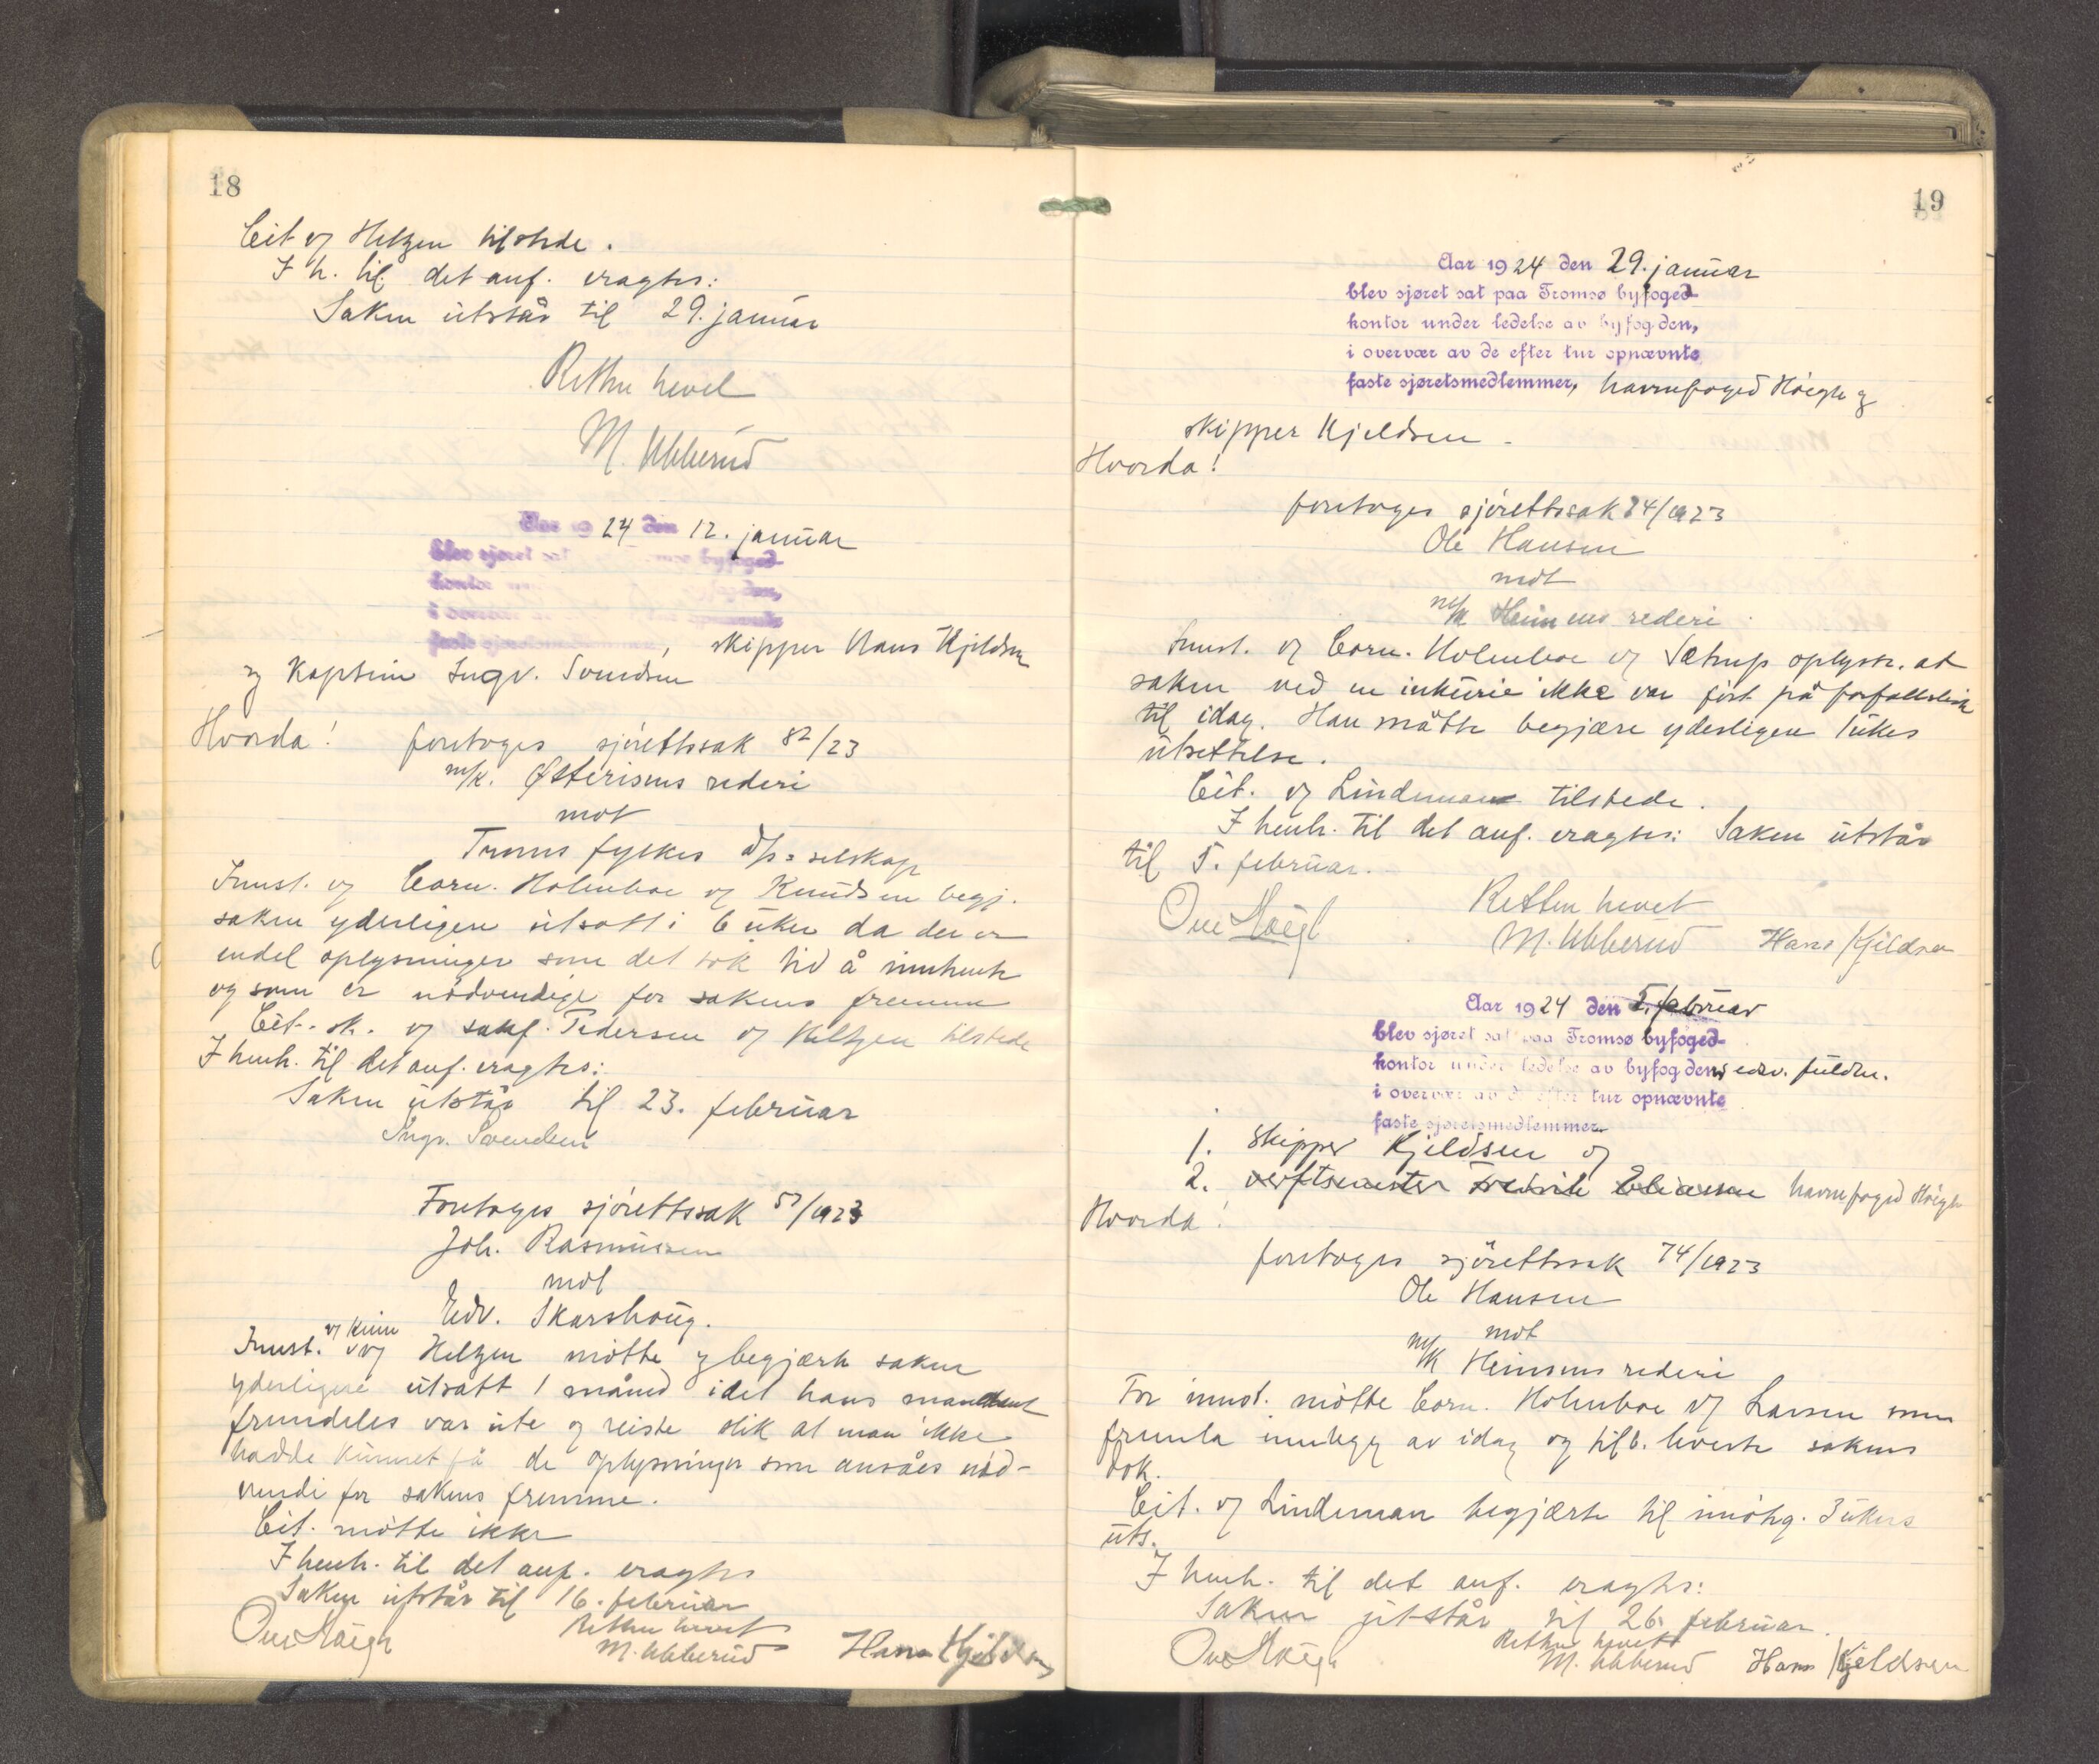 18
Cit. v/ Heltzen tilstede.
I h. til det anf. eragtes:
Saken utstår til 29. januar
Retten hevet
M. Ubberud
Aar 1924 den 12. januar
blev sjøret sat byfoged-
kontor den,
i overvær opnævnte
faste sjøretsmedlemmer, skipper Hans Kjeldsen
og Kaptein Ingv. Svendsen
Hvorda! foretoges sjørettssak 82/23
m/k. Østerisens rederi
mot
Troms fylkes d/s-selskap
Innst. v/ Corn. Holmboe v/ Knudsen begj.
saken yderligere utsatt i 6 uker da der er
endel oplysninger som det tok tid å innhente
og som er nødvendige for sakens fremme
Cit. sk. v/ sakf. Pedersen v/ Heltzen tilstede
I henh. til det anf. eragtes:
Saken utstår til 23. februar
Ingv. Svendsen
Foretoges sjørettssak 57/1923
Joh. Rasmussen
mot
Edv. Skarshaug.
Innst. v/ Heltzen møtte og begjærte saken
yderligere utsatt 1 måned idet hans mandant
fremdeles var ute og reiste slik at man ikke
hadde kunnet få de oplysninger som ansåes nød-
vendi for sakens fremme.
Cit. møtte ikke
I henh. til det anf. eragtes
Saken utstår til 16. februar
Retten hevet
Ove Høegh M. Ubberud Hans Kjeldsen
19
Aar 1924 den 29. januar
blev sjøret sat paa Tromsø byfoged-
kontor under ledelse av byfogden,
i overvær av de efter tur opnævnte
faste sjøretsmedlemmer, havnefoged Høegh og
skipper Kjeldsen.
Hvorda!
foretoges sjørettssak 74/1923
Ole Hansen
mot
m/k Heimens rederi
Innst. v/ Corn. Holmboe v/ Sætrup oplyste at
saken ved en inkurie ikke var ført på forfallsliste
til idag. Han måtte begjære yderligere 1 ukes
utsettelse.
Cit. v/ Lindeman tilstede.
I henh. til det anf. eragtes: Saken utstår
til 5. februar.
Retten hevet
Ove Høegh M. Ubberud Hans Kjeldsen
Aar 1924 den 5. februar
blev sjøret sat paa Tromsø byfoged-
kontor under ledelse av byfogdens edsv. fuldm.
i overvær av de efter tur opnævnte
faste sjøretsmedlemmer.
1. skipper Kjeldsen og
2. verftsmester Fredrik Eliassen havnefoged Høegh
Hvorda!
foretoges sjørettssak 74/1923
Ole Hansen
mot
m/k Heimens rederi
For innst. møtte Corn. Holmboe v/ Larsen som
fremla innlegg av idag og tilb. leverte sakens
dok.
Cit. v/ Lindeman begjærte til imøtg. 3 ukers
uts.
I henh. til det anf. eragtes:
Saken utstår til 26. februar.
Retten hevet
Ove Høegh M. Ubberud Hans Kjeldsen